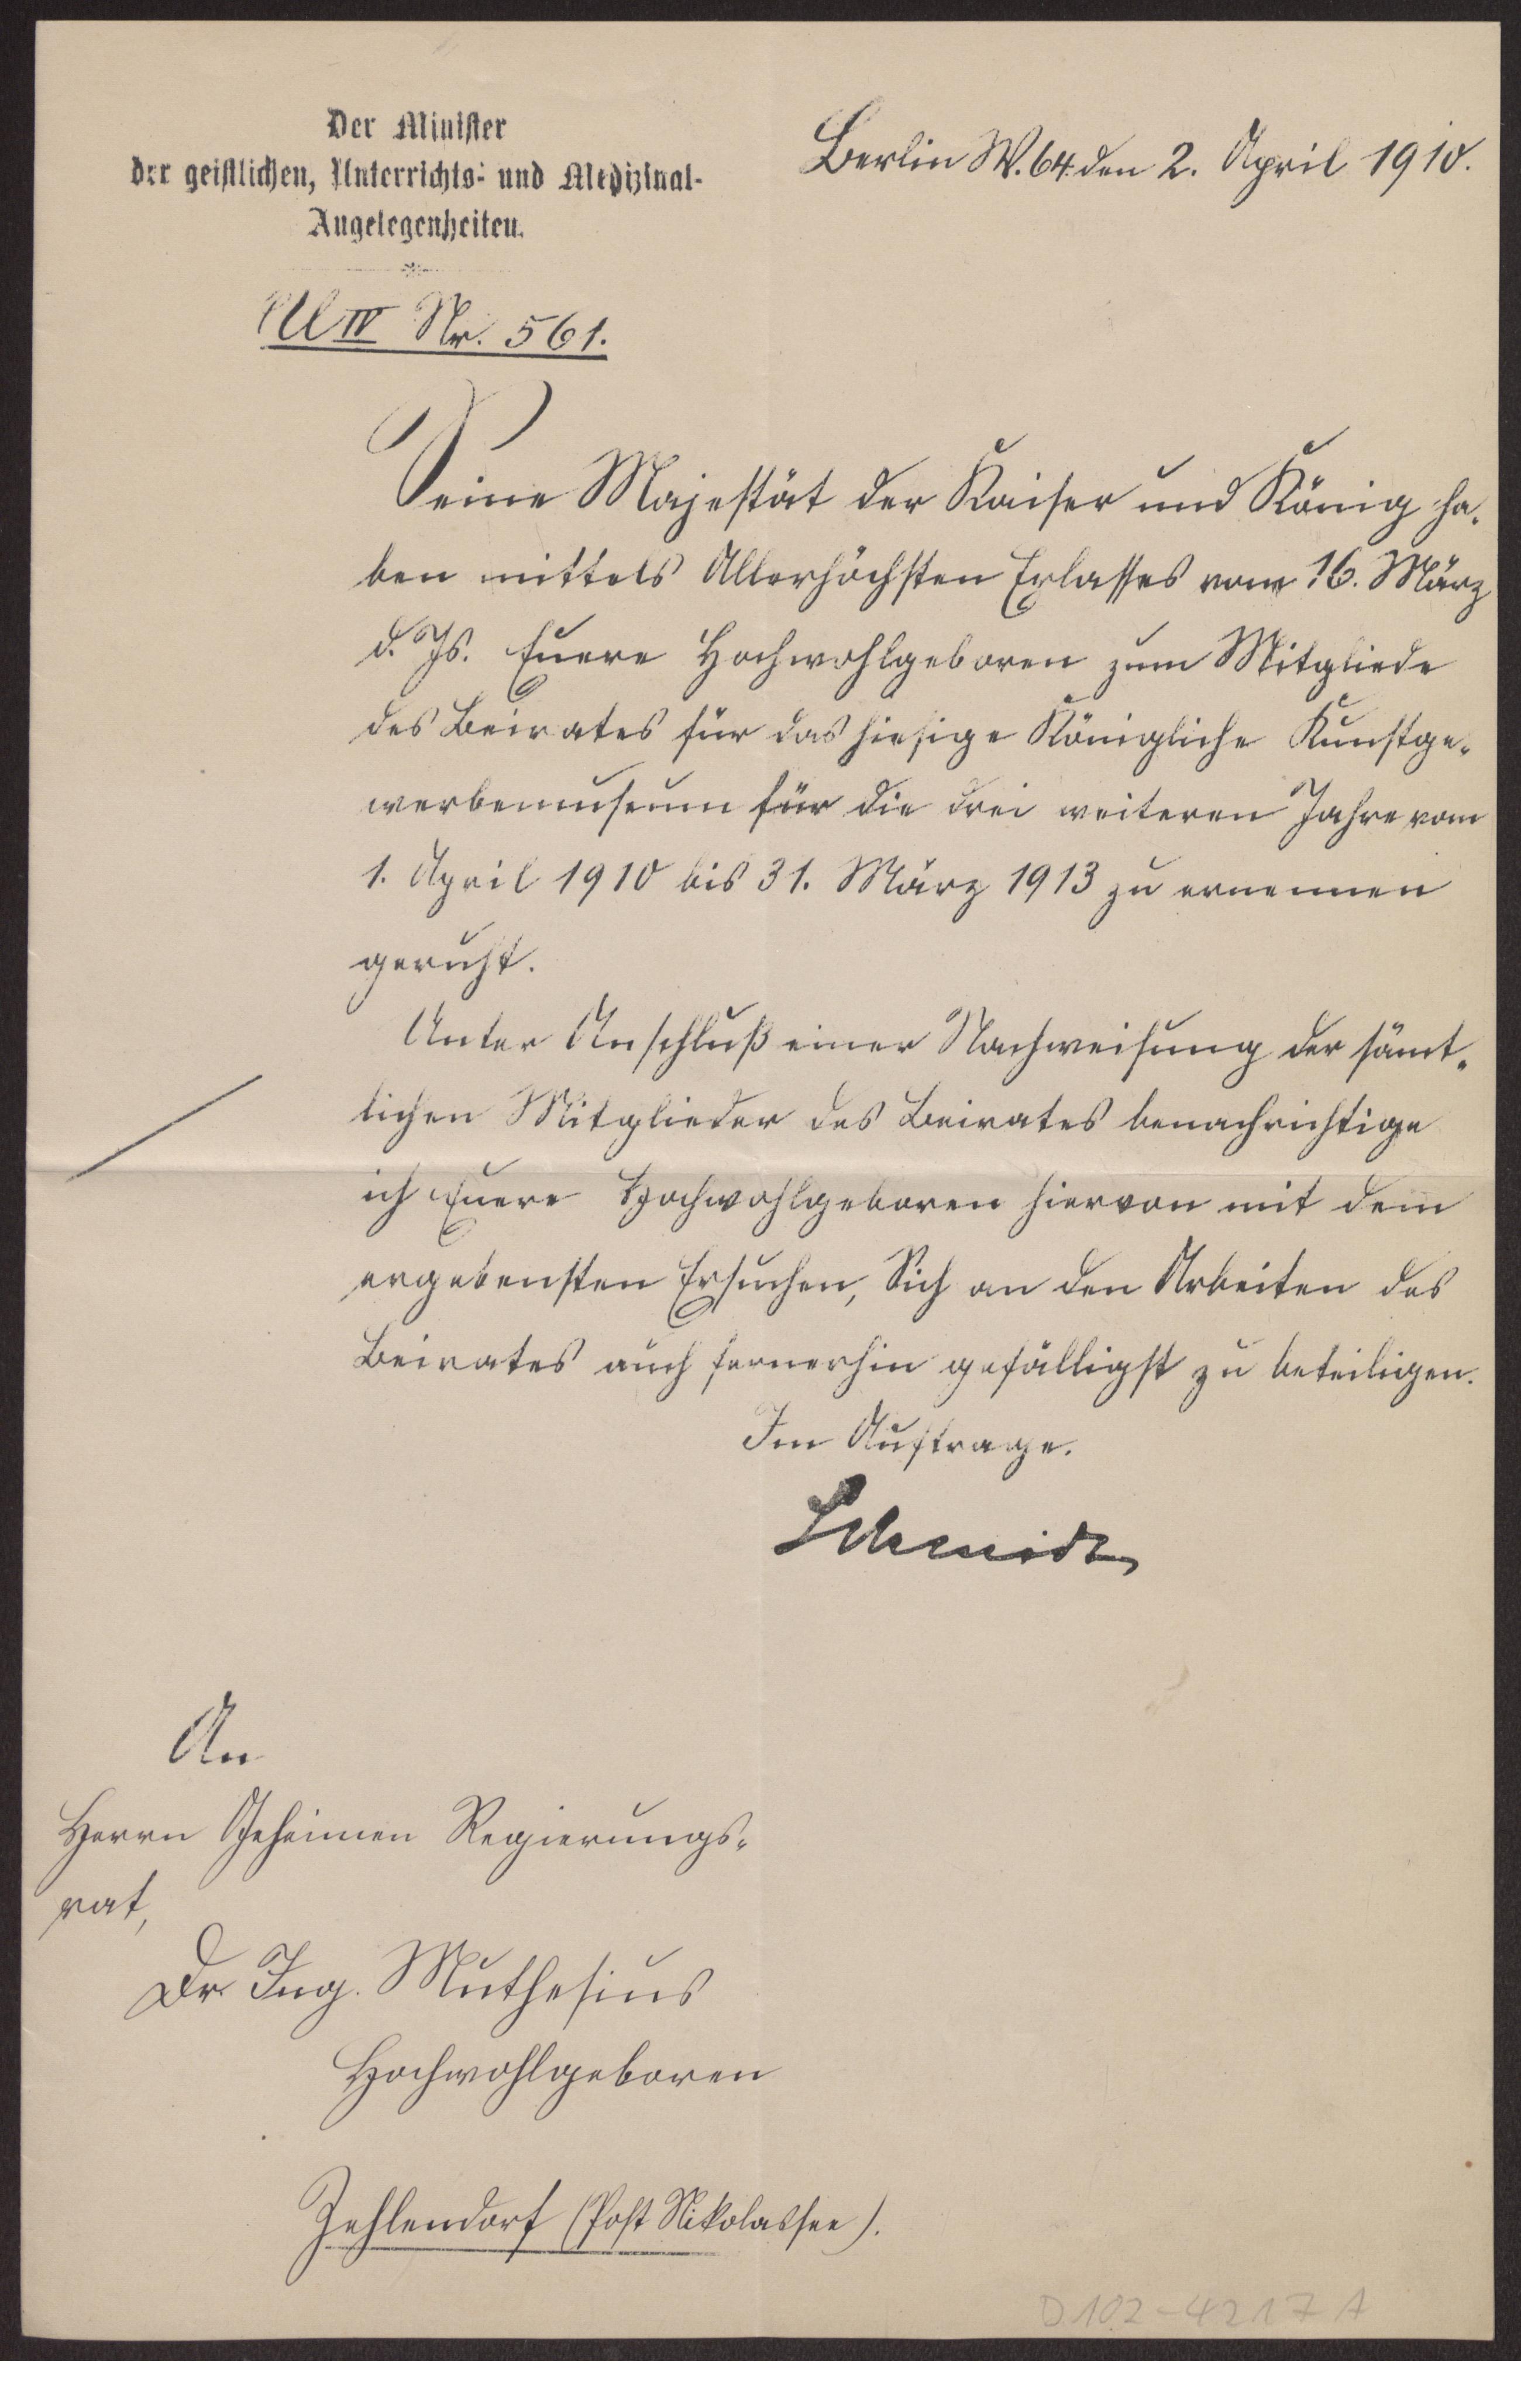 Der Minister
der geistlichen, Unterrichts- und Medizinal-
Angelegenheiten.
Berlin W. 64. den 2. April 1910.
U IV Nr. 561.
Seine Majestät der Kaiser und König ha-
ben mittels Allerhöchsten Erlasses vom 16. März
d. Js. Euere Hochwohlgeboren zum Mitgliede
des Beirates für das hiesige Königliche Kunstge-
werbemuseum für die drei weiteren Jahre vom
1. April 1910 bis 31. März 1913 zu ernennen
geruht.
Unter Anschluß einer Nachweisung der sämt-
lichen Mitglieder des Beirates benachrichtige
ich Euere Hochwohlgeboren hiervon mit dem
ergebensten Ersuchen, Sich an den Arbeiten des
Beirates auch fernerhin gefälligst zu beteiligen.
Im Auftrage.
Schmidt
An
Herrn Geheimen Regierungs-
rat,
Dr. Ing. Muthesius
Hochwohlgeboren
Zehlendorf (Post Nikolassee).
D102-4217 A